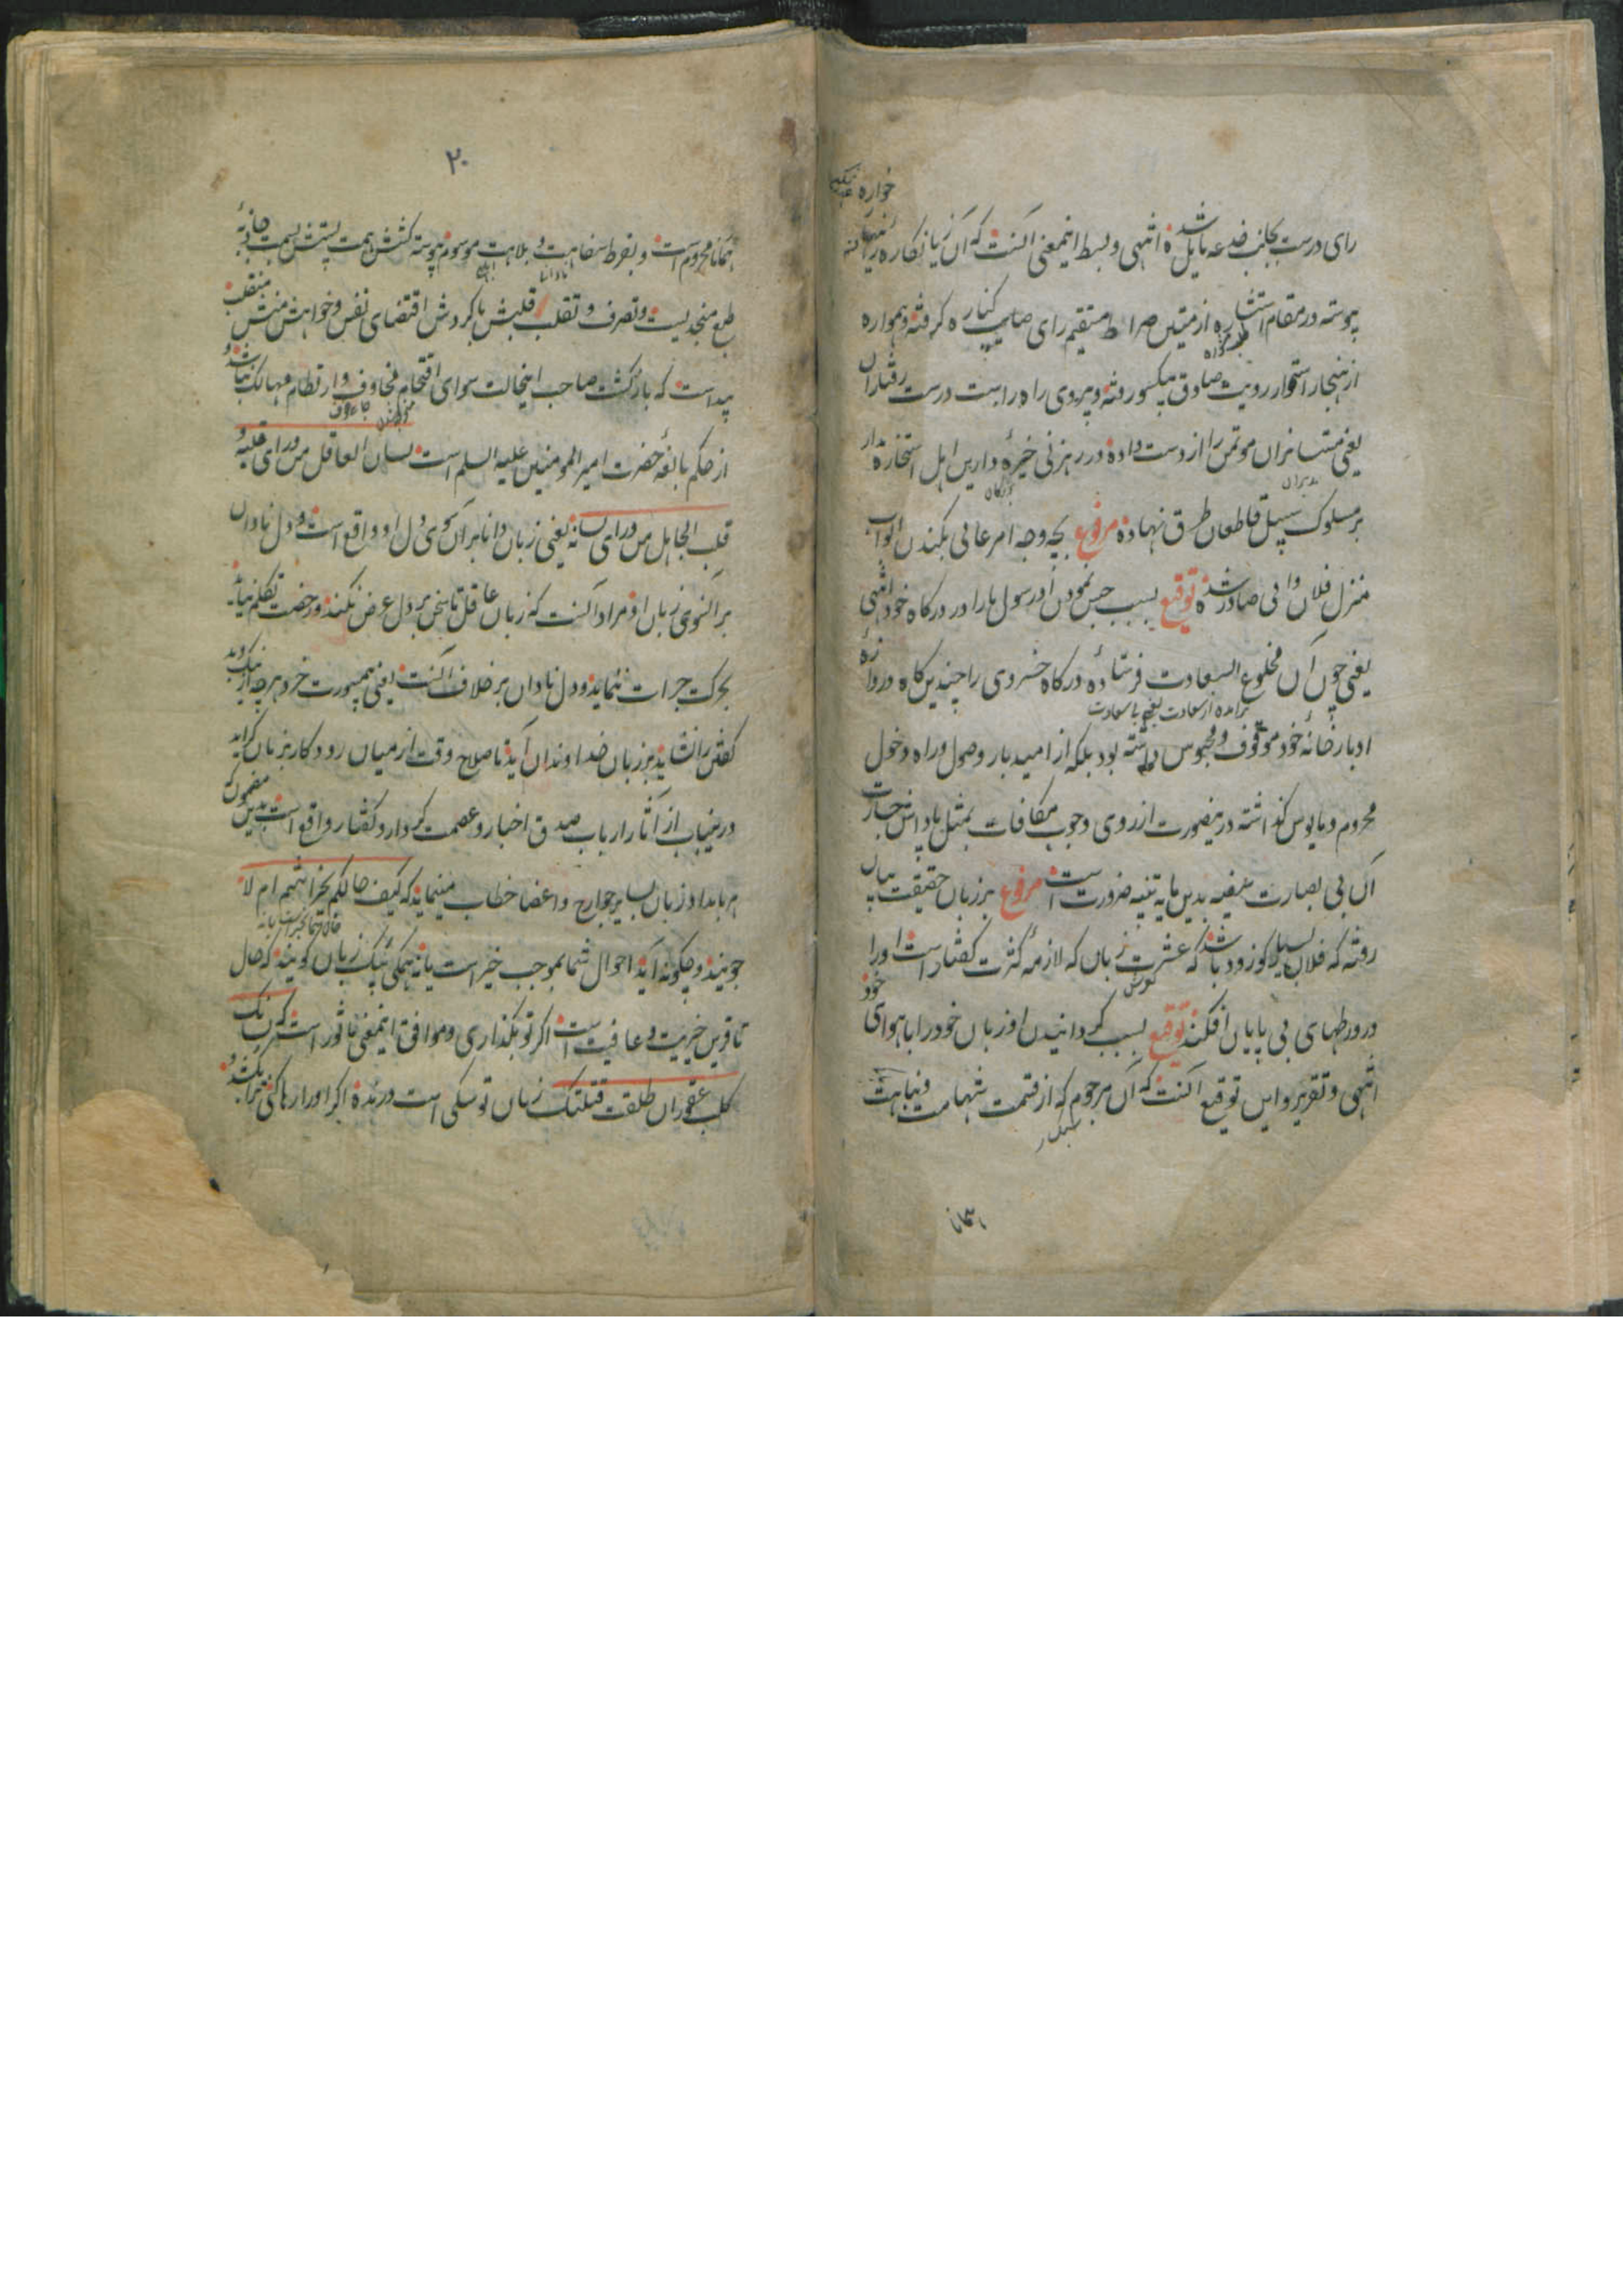 رای درست بجانب خدعه مایل شده انتهی و بسط اینمعنی آنست که آن زیانکاره
پیوسته در مقام استشاره از متین صراط مستقیم رای صایب کناره گرفته و همواره
از هنجار استوار رویت صادق یکسو رفته و پیروی راه راست درست رفتاران
یعنی مستشاران موتمن را از دست داده در رهزنی خیره دارین اهل استخاره مدار
بر سلوک سبیل قاطعان طرق نهاده مرفوع بچه وجه امر عالی بکندن ابواب
منزل فلان والی صادر شده توقیع بسبب حبس نمودن او رسول ما را در درگاه خود انتهی
یعنی چون آن مخلوع السعادت فرستاده درگاه خسروی را چندین گاه در دروازه
برآمده از سعادت یعنی با سعادت
ادبار خانه خود موقوف و محبوس داشته بود بلکه از امید بار وصول و راه دخول
محروم و مایوس گذاشته درینصورت از روی وجوب مکافات بمثل پاداش جسارت
آن بی بصارت سفیه بدین مایه تنبیه ضرورت است مرفوع بر زبان حقیقت بیان
رفته که فلان بسیار گو زود باشد که عشرت زبان که لازمه کثرت گفتار است او را
در ورطهای بی پایان افکند توقیع بسبب گردانیدن او زبان خود را با هوای خود
انتهی و تقریر و این توقیع آنست که آن مرجوم که از قسمت شهامت و نباهت
همانا
۲۰
همانا محروم است و بفرط سفاهت و بلاهت موسوم پیوسته کشش همت پستش بسمت جاذبه
طبع منجذبست و تصرف و تقلب قلبش با گردش اقتضای نفس و خواهش منش منقلب
پیداست که بازگشت صاحب اینحالت سوای اقتحام مخاوف و ارتطام مهالک نباشد و
از حکم بالغه حضرت امیر المومنین علیه السلم است لسان العاقل من ورای قلبه و
قلب الجاهل من ورای لسانه یعنی زبان دانا بر آن سوی دل او واقع است و دل نادان
بر آنسوی زبان او مراد آنست که زبان عاقل تا سخن بر دل عرض نکند و رخصت تکلم نیابد
بحرکت جرات ننماید و دل نادان بر خلاف آنست یعنی بمشورت خرد هرچه از نیک و بد
گفتن را نشاید بر زبان خداوندان آید تا صلاح وقت از میان رود و کار بر زبان گراید
درینباب از آثار ارباب صدق اخبار و عصمت کردار و گفتار واقع است بدین مضمون که
هر بامداد زبان بسایر جوارح و اعضا خطاب مینماید که کیف حالکم بخیر انتم ام لا
جویند و چگونه‌اید احوال شما بموجب خیر است یا نه همگی بیک زبان گویند که حال
ما قرین خیریت و عافیت است اگر تو بگذاری و موافق اینمعنی ماثور است که لسانک
کلب عقور ان طلقت قتلتک زبان تو سگی است درنده اگر او را رها کنی ترا بکشد و